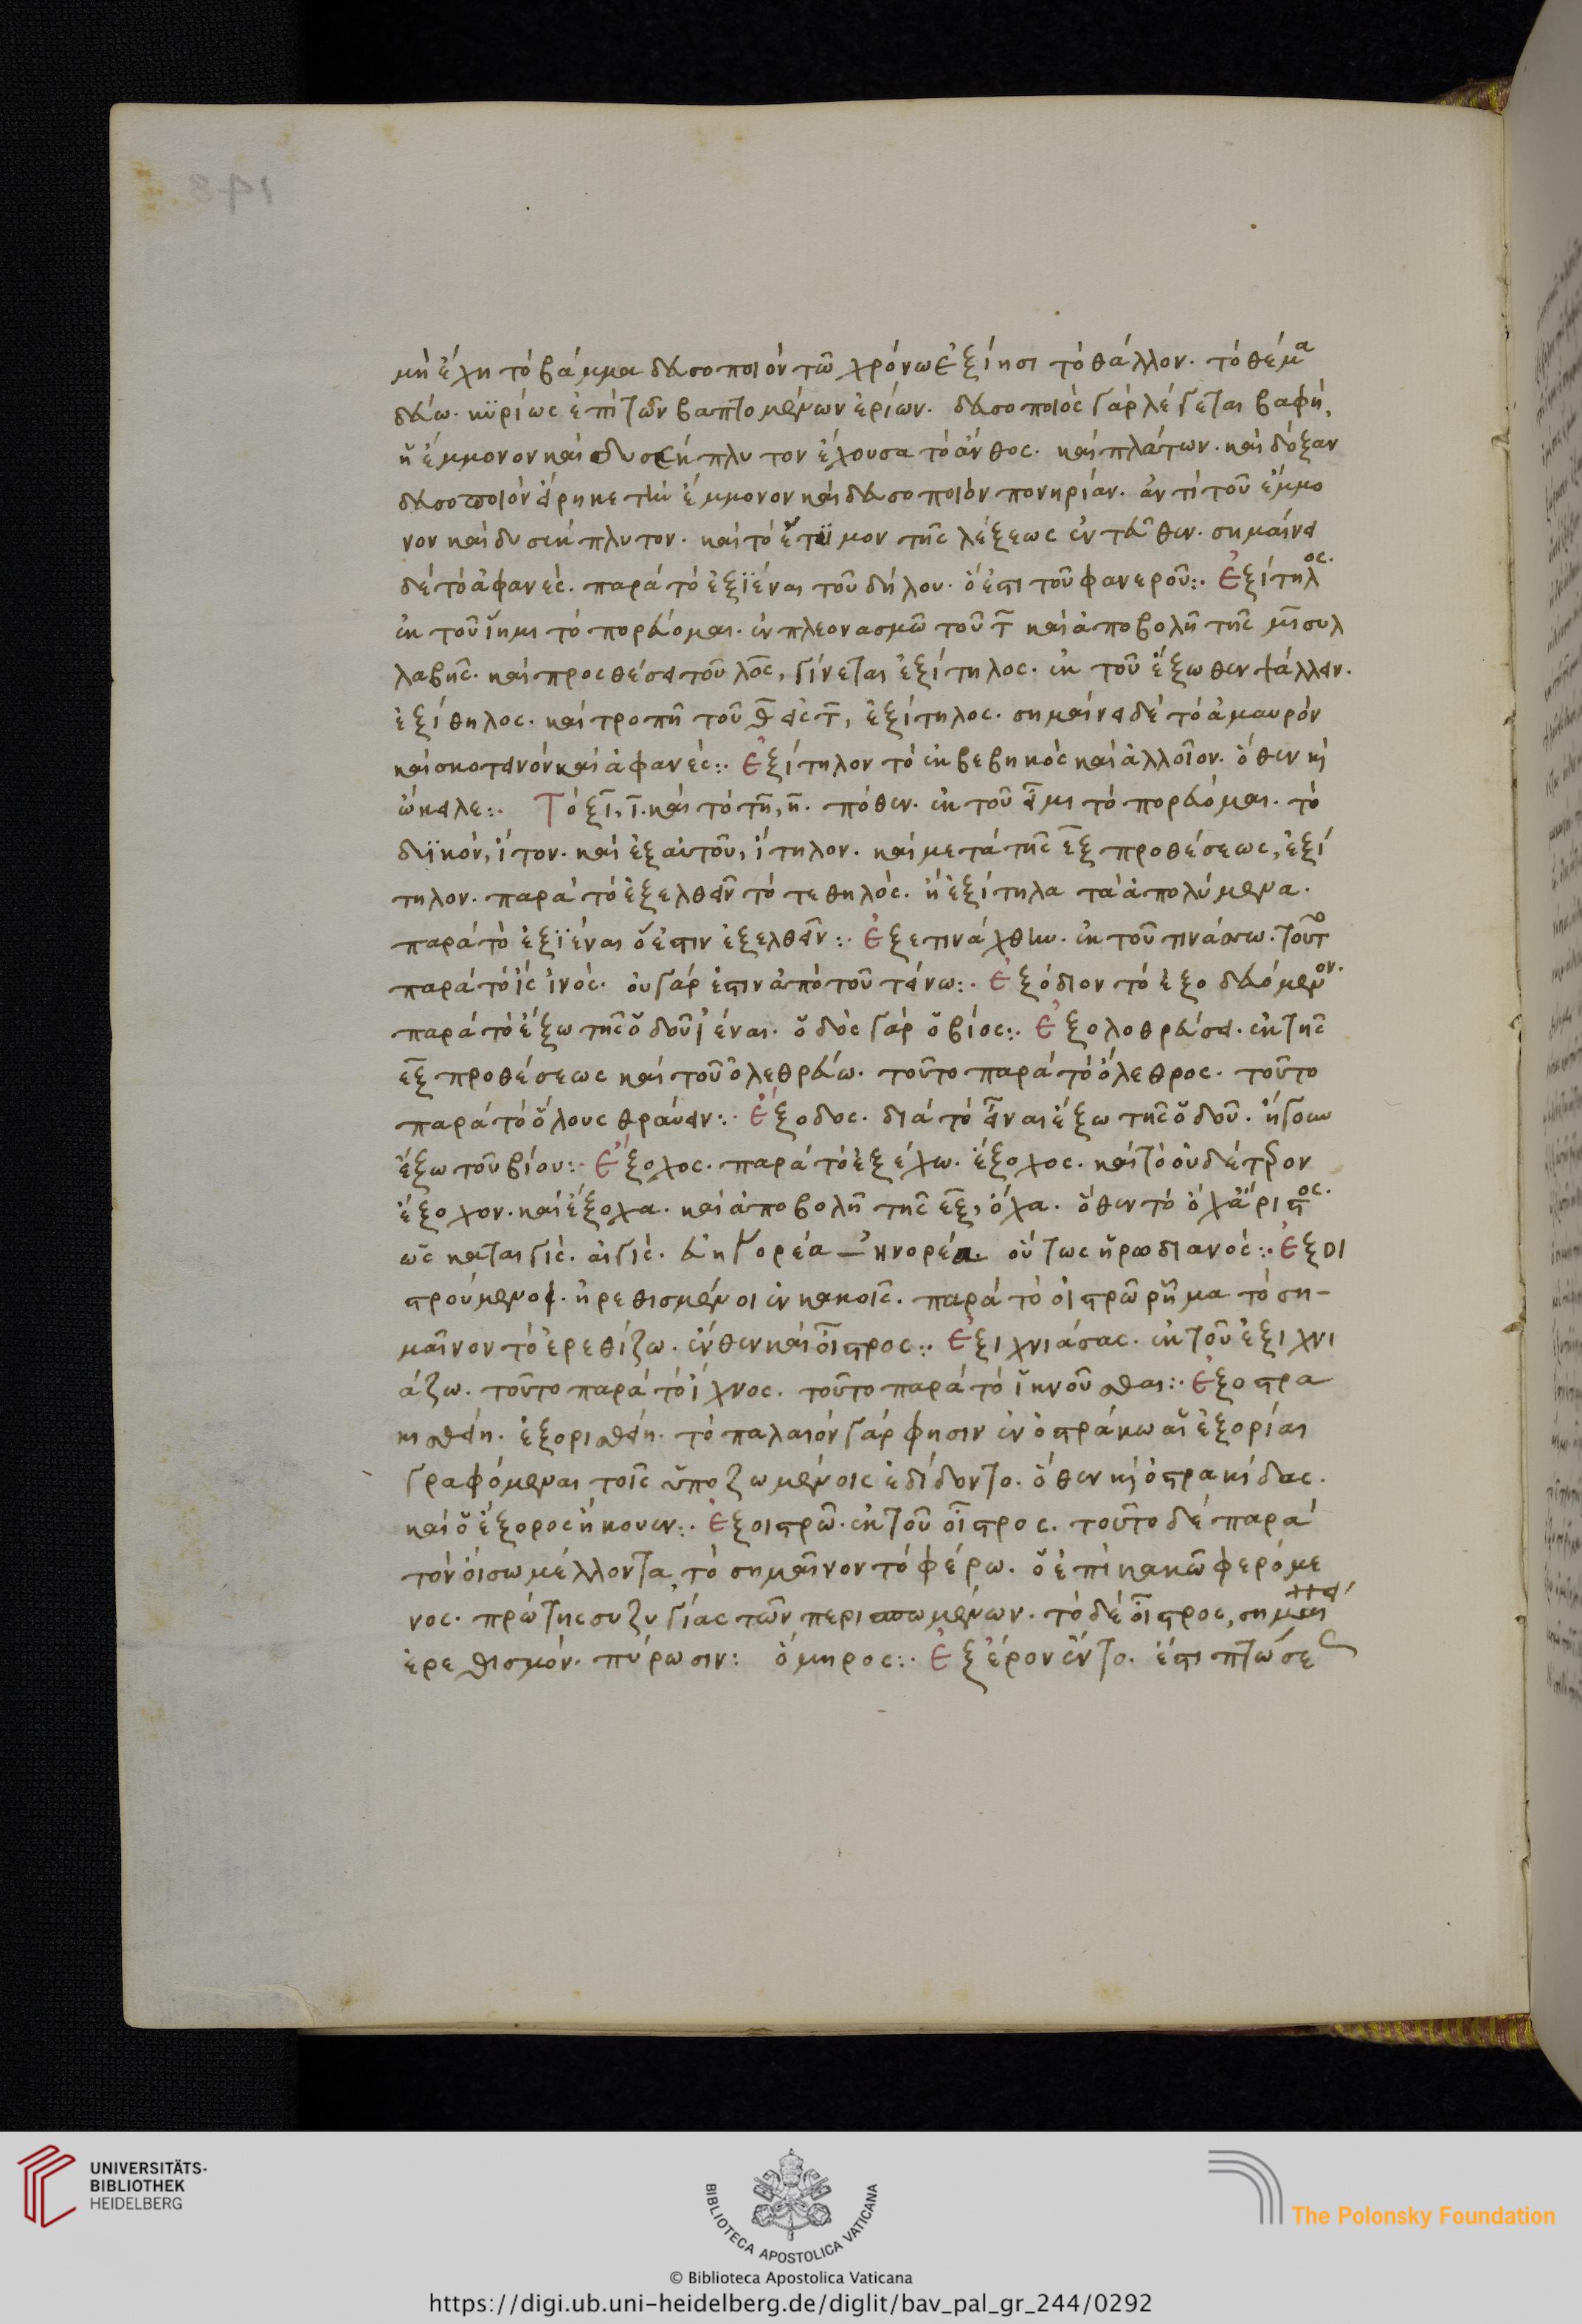 μὴ ἔχη τὸ βάμμα δευσοποιὸν τῶ χρόνω ἐξίησι τὸ θάλλον. τὸ θέμα
δεύω. κυρίως ἐπὶ τῶν βαπτομένων ἐρίων. δευσοποιὸς γὰρ λέγεται βαφὴ,
ἡ ἔμμονον καὶ δυσέκπλυτον ἔχουσα τὸ άνθος. καὶ πλάτων. καὶ δόξαν
δευσοποιὸν εἴρηκε τὴν ἔμμονον καὶ δευσοποιὸν πονηρίαν. ἀντὶ τοῦ ἔμμο
νον καὶ δυσέκπλυτον. καὶ τὸ ἔτυμον τῆς λέξεως ἐντεῦθεν. σημαίνει
δὲ τὸ ἀφανὲς. παρὰ τὸ ἐξϊέναι τοῦ δήλου. ὅ ἐστι τοῦ φανεροῦ:. Ἐξίτηλος.
ἐκ τοῦ ἵημι τὸ πορεύομαι. ἐν πλεονασμῶ τοῦ τ καὶ ἀποβολῆ τῆς μι συλ
λαβῆς. καὶ προσθέσει τοῦ λος, γίνεται ἐξίτηλος. ἐκ τοῦ ἔξωθεν θάλλειν.
ἐξίθηλος. καὶ τροπῆ τοῦ θ εἰς τ, ἐξίτηλος. σημαίνει δὲ τὸ ἀμαυρὸν
καὶ σκοτεινὸν καὶ ἀφανὲς:. Ἐξίτηλον τὸ ἐκβεβηκὸς καὶ ἀλλοῖον. ὅθεν κὶ
ώκειλε:. Τὸ ξι, ι. καὶ τὸ τη, η. πόθεν. ἐκ τοῦ εἶμι τὸ πορεύομαι. τὸ
δυϊκὸν, ἴτον. καὶ ἐξ αὐτοῦ, ἴτηλον. καὶ μετὰ τῆς ἐξ προθέσεως, ἐξί
τηλον. παρὰ τὸ ἐξελθεῖν τὸ τεθηλός. ἢ ἐξίτηλα τὰ ἀπολύμενα.
παρὰ τὸ ἐξϊέναι ὅ ἐστιν ἐξελθεῖν:. Ἐξετινάχθην. ἐκ τοῦ τινάσσω. τοῦτο
παρὰ τὸ ἲς ἰνός. οὐ γάρ ἐστιν ἀπὸ τοῦ τείνω:. Ἐξόδιον τὸ ἐξοδευόμενον.
παρὰ τὸ ἔξω τῆς ὁδοῦ ἰέναι. ὁδὸς γὰρ ὁ βίος:. Ἐξολοθρεύσει. ἐκ τῆς
ἐξ προθέσεως καὶ τοῦ ὀλεθρεύω. τοῦτο παρὰ τὸ ὄλεθρος. τοῦτο
παρὰ τὸ ὅλους θραύειν:. Ἔξοδος. διὰ τὸ εἶναι ἔξω τῆς ὁδοῦ. ἤγουν
ἔξω τοῦ βίου:. Ἔξοχος. παρὰ τὸ ἐξέχω. ἔξοχος. καὶ τὸ οὐδέτερον
ἔξοχον. καὶ ἔξοχα. καὶ ἀποβολῆ τῆς ἐξ, όχα. ὅθεν τὸ ὀχάριστος.
ὡς καταιγὶς. αἰγίς. εὐηγορέα — ἠνορέα. οὕτως ἡρωδιανός:. Ἐξοι
στρούμενοι. ἠρεθισμένοι ἐν κακοῖς. παρὰ τὸ οἰστρῶ ῥῆμα τὸ ση-
μαῖνον τὸ ἐρεθίζω. ἔνθεν καὶ οἶστρος:. Ἐξιχνιάσας. ἐκ τοῦ ἐξιχνι
άζω. τοῦτο παρὰ τὸ ἴχνος. τοῦτο παρὰ τὸ ἱκνοῦσθαι:. Ἐξοστρα
κισθείη. ἐξορισθείη. τὸ παλαιὸν γάρ φησιν ἐν ὀστράκω αἱ ἐξορίαι
γραφόμεναι τοῖς ὑποζωμένοις ἐδίδοντο. ὅθεν κὶ ὀστρακίδας.
καὶ ὁ ἔξορος ἤκουεν:. Ἐξοιστρῶ. ἐκ τοῦ οἶστρος. τοῦτο δὲ παρὰ
τὸν οἴσω μέλλοντα, τὸ σημαῖνον τὸ φέρω. ὁ ἐπὶ κακῶ φερόμε
νος. πρώτης συζυγίας τῶν περισπωμένων. τὸ δὲ οἶστρος,
ἐρεθισμὸν. πύρωσιν: ὅμηρος:. Ἐξ έρον έντο. ἔστι πτώσε
UNIVERSITÄTS-
BIBLIOTHEK
HEIDELBERG
BIBLIOTECA APOSTOLICA VATICANA
The Polonsky Foundation
© Biblioteca Apostolica Vaticana
https://digi.ub.uni-heidelberg.de/diglit/bav_pal_gr_244/0292